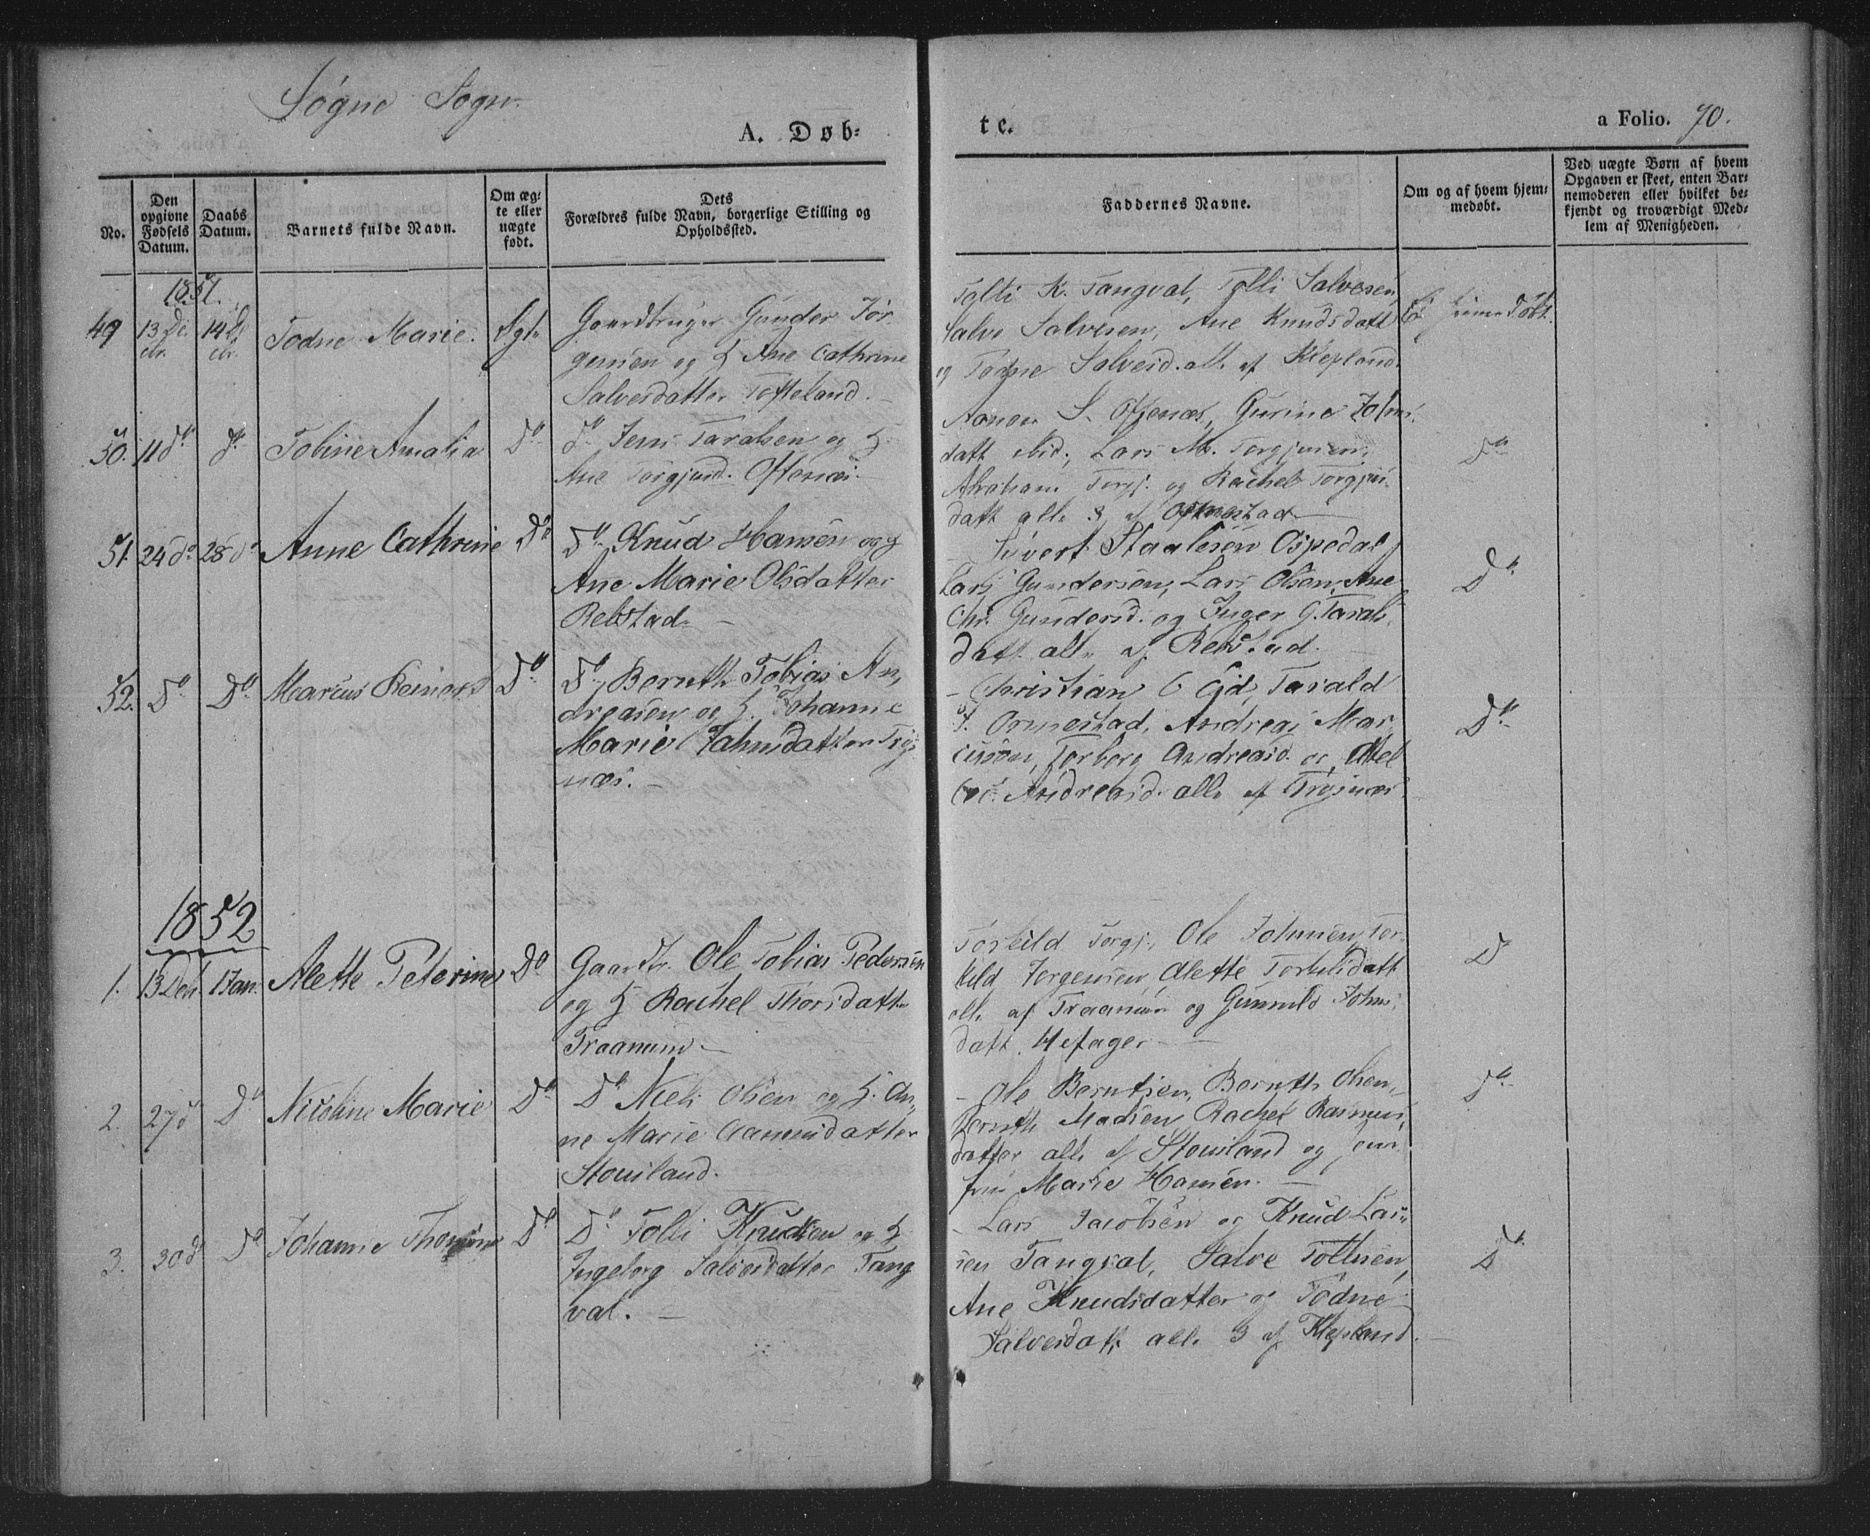 Søgne Sogn
A. Døb-
te.
a Folio. 70.
No.
Den opgivne Fødsels Datum.
Daabs Datum.
Barnets fulde Navn.
Om ægte eller uægte født.
Dets Forældres fulde Navn, borgerlige Stilling og Opholdssted.
Faddernes Navne.
Om og af hvem hjemmedøbt.
Ved uægte Børn af hvem Opgaven er skeet, enten Barnemoderen eller hvilket bekjendt og troværdigt Medlem af Menigheden.
1851.
49 13 De 14 D Todne Marie. Ægte Gaardbruger Gunder Jør-
cbr. cbr. gensen og H Ane Cathrine
Salvesdatter Tofteland.
Tolli K. Tangval, Tolli Salvesen,
Salve Salvesen, Ane Knudsdatt
og Todne Salvesd. all. af Klepland.
Ei hjemmedøbt.
50. 11 do do Tobine Amalia Do do Jens Taralsen og H.
Ane Torgjusd. Oftenæs.
Aanon S. Oftenæs, Gurine Johns
datt ibid., Lars M. Torgjusen,
Abraham Torgj. og Rachel Torgjus-
datt alle 3 af
Do
51. 24 do 28 do Anne Cathrine Do Do Knud Hansen og
Ane Marie Olsdatter
Rebstad.
Sivert Staalesen Ospedal,
Lars Gundersen, Lars Olsen, Ane
Chr. Gundersd. og Inger G. Tarals
datt. alle af Rebstad.
Do
52. Do Do Marcus Reinert Do Do Bernth Tobias An-
dreasen og H. Johanne
Marie Johnsdatter Trys
næs.
Christian C Eid, Tarald
T. Ormestad, Andreas Mar-
cussen, Torborg Andreasd. og Abel
Andreasd. alle af Trysnæs
Do
1852
1. 13 Decb. 1 Jan. Alette Peterine Do Gaardbr. Ole Tobias Pedersen
og H Rachel Thorsdatter
Traanum
Torkild Torgj., Ole Johnsen, Tor-
kild Jørgensen, Alette Torkilsdatt
alle af Traanum og Gunnild Johns
datt. Høfager
Do
2. 27 do Do Nicoline Marie Do Do Niels Olsen og H. An-
ne Marie Aanensdatter
Stousland.
Ole Berntsen, Bernth Olsen,
Bernth Madsen Rachel Rasmus
datter alle af Stousland og jom
fru Marie Hansen.
Do
3. 30 do Do Johanne Do Do Tolli Knudsen og H
Ingeborg Salvesdatter Tang
val.
Lars Jacobsen og Knud Lar-
sen Tangval, Salve Tollisen,
Ane Knudsdatter og Todne
Salvesdatt alle 3 af Klepland.
Do